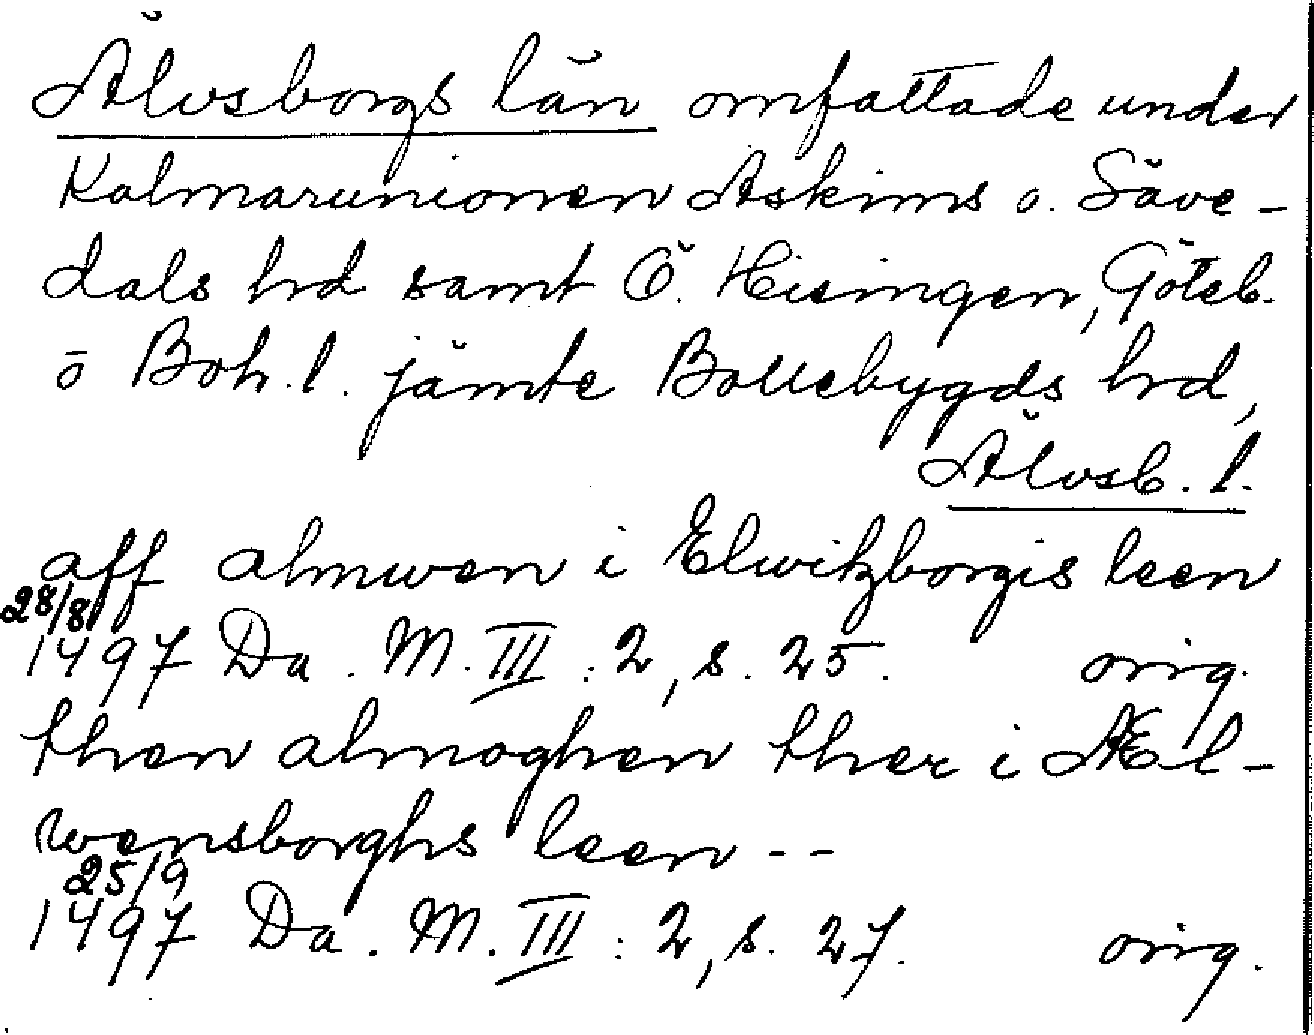 Älvsborgs län omfattade under
Kalmarunionen Askims o. Säve-
dals hrd samt Ö. Hisingen, Göteb.
o Boh. l. jämte Bollebygds hrd,
Älvsb. l.
aff almwen i Elwitzborgis leen
28/8
1497 Da. M. III : 2, s. 25. orig.
then almoghen ther i Æl-
wensborghs leen --
25/9
1497 Da. M. III : 2, s. 27. orig.